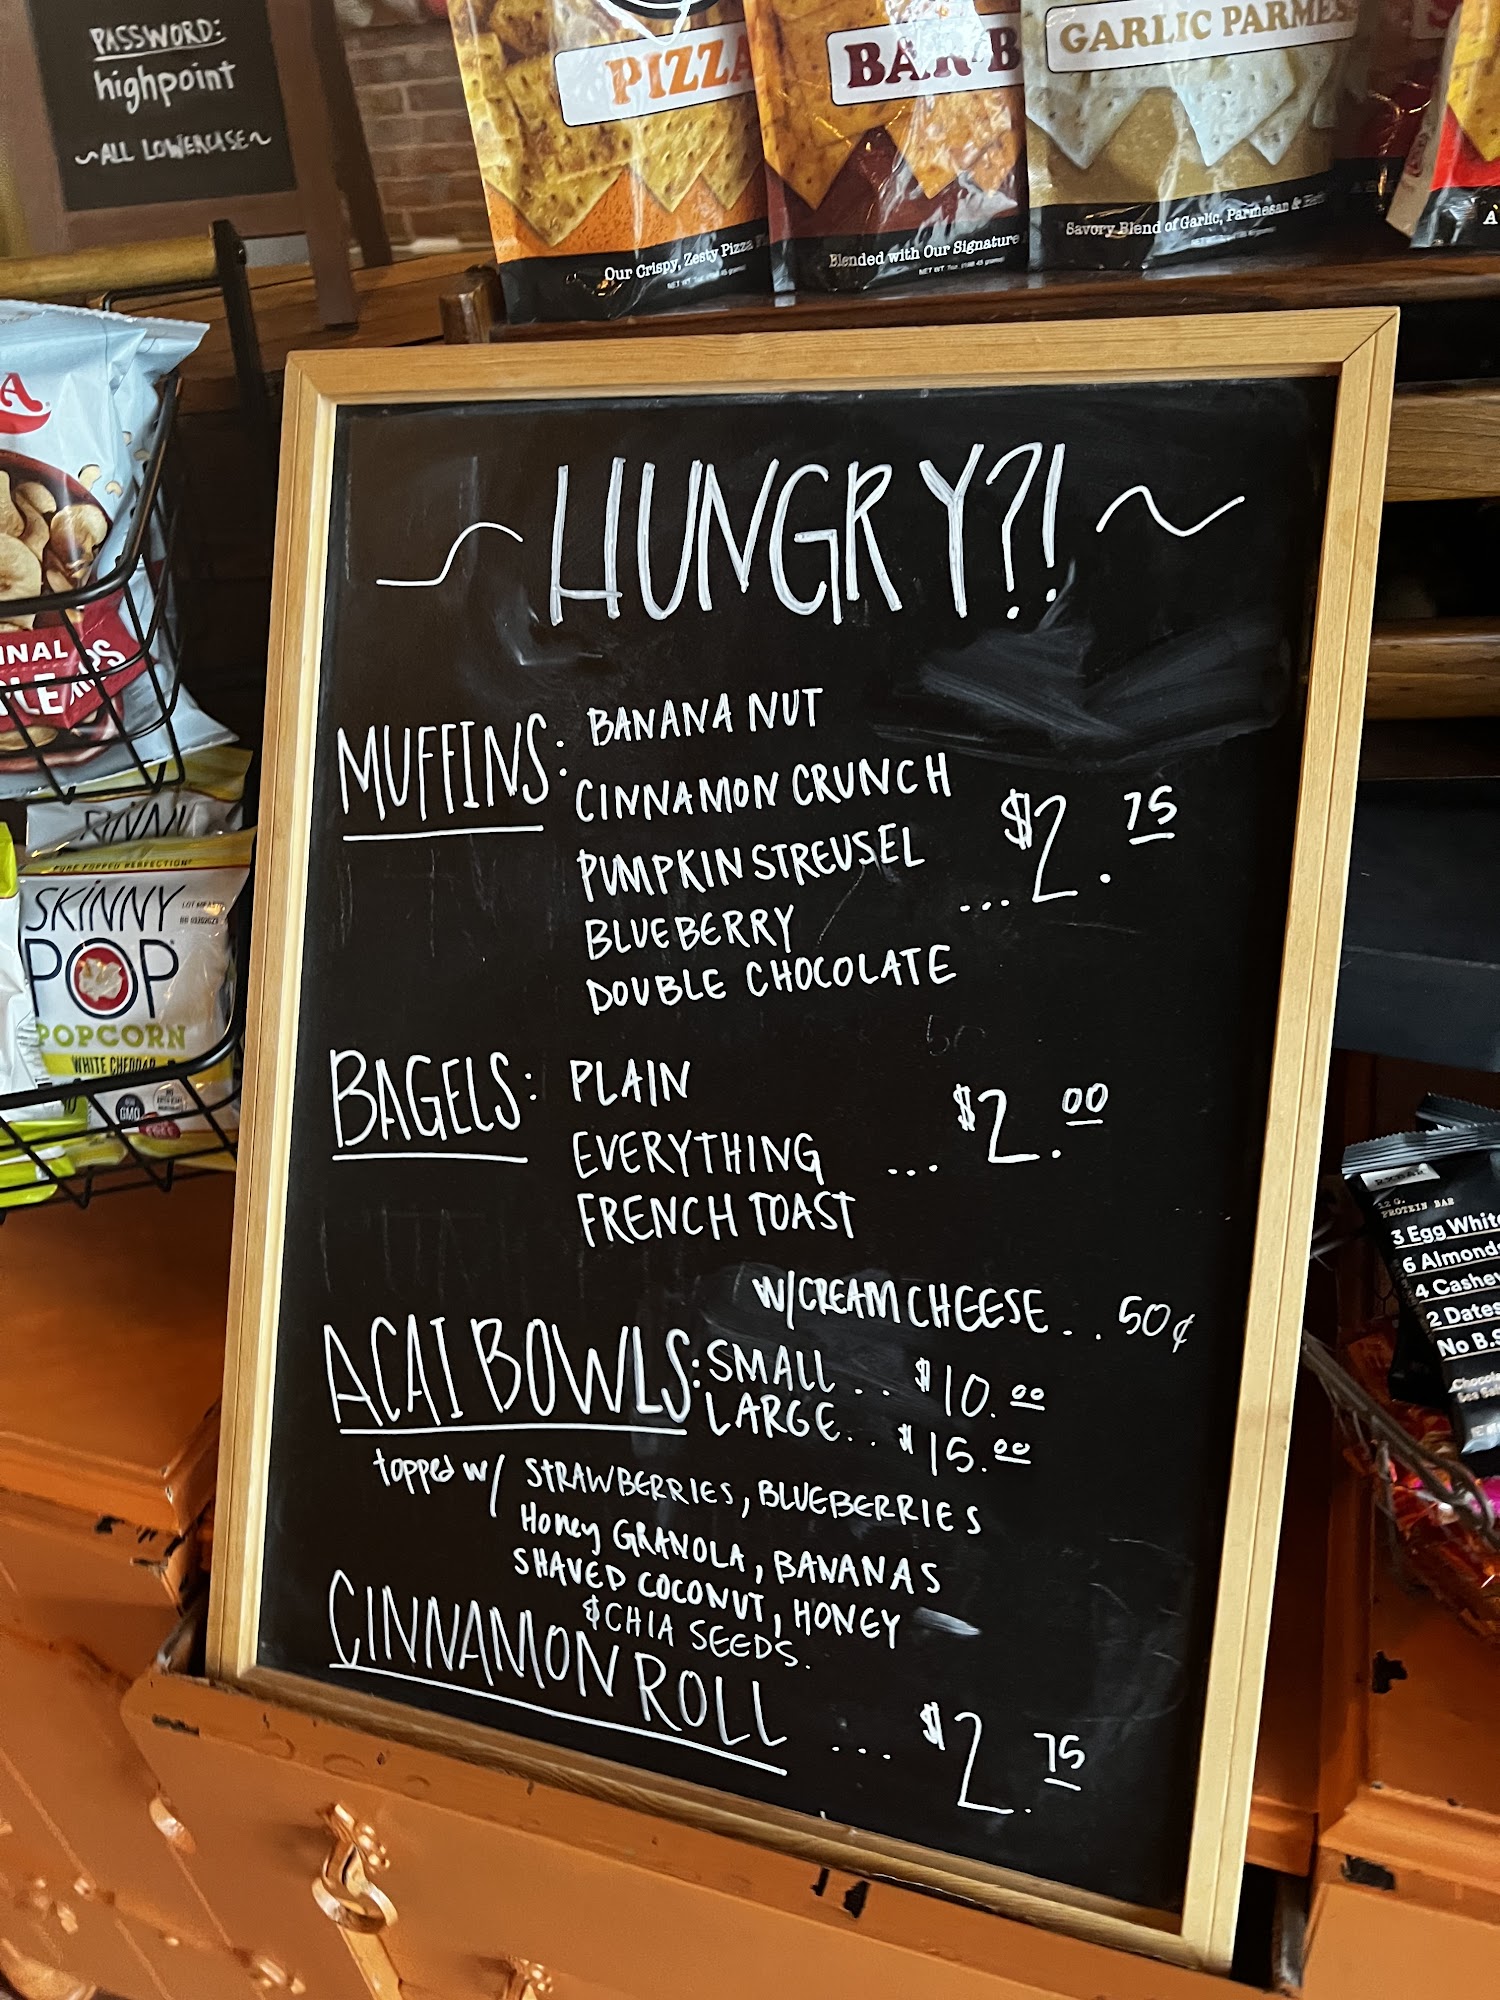 PASSWORD:
highpoint
~ALL LOWERCASE~
PIZZA
Our Crispy, Zesty Pizza
BAR B
Blended with Our Signature
GARLIC PARMES
Savory Blend of Garlic, Parmesan &
A
INAL
SKINNY
POP
POPCORN
WHITE CHEDDAR
PURE POPPED PERFECTION
NON
GMO
~ HUNGRY?! ~
MUFFINS: BANANA NUT
CINNAMON CRUNCH
PUMPKIN STREUSEL ... $2.75
BLUEBERRY
DOUBLE CHOCOLATE
BAGELS: PLAIN
EVERYTHING ... $2.00
FRENCH TOAST
W/CREAM CHEESE... 50¢
ACAI BOWLS: SMALL... $10.00
LARGE... $15.00
topped w/ STRAWBERRIES, BLUEBERRIES
Honey GRANOLA, BANANAS
SHAVED COCONUT, HONEY
& CHIA SEEDS.
CINNAMON ROLL ... $2.75
RXBAR
12 G.
PROTEIN BAR
3 Egg White
6 Almonds
4 Cashew
2 Dates
No B.S
Chocola
Sea Sal